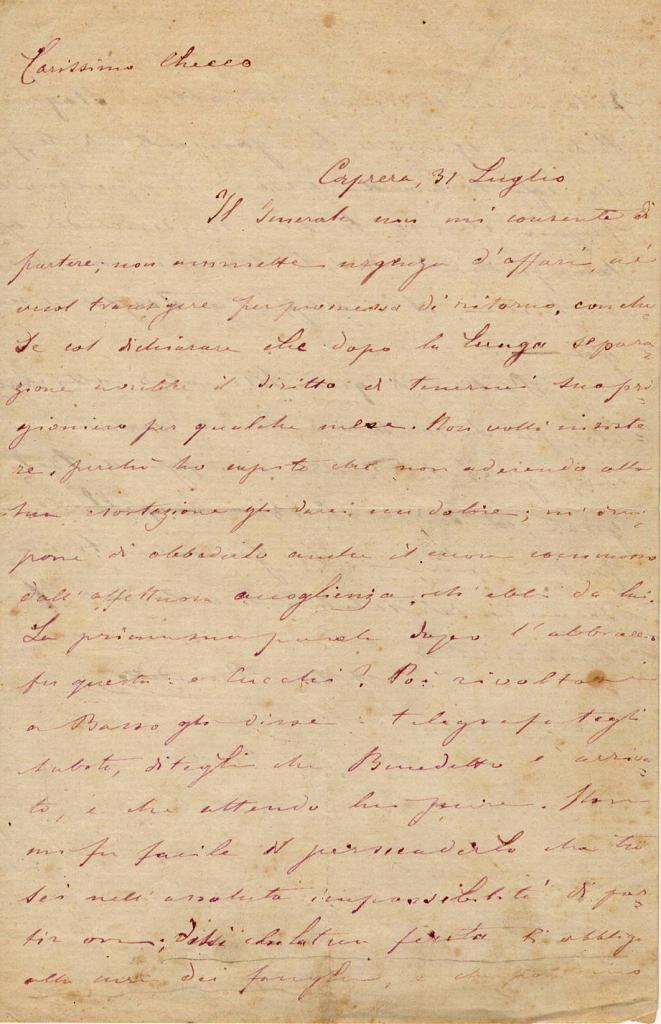 Carissimo Checco
Caprera, 31 Luglio
Il Generale non mi consente di
partire; non ammette urgenza d'affari, nè
vuol transigere per promessa di ritorno, conclu-
de col dichiarare che dopo la lunga separa-
zione avrebbe il diritto di tenermi suo pri-
gioniero per qualche mese. Non volli insiste-
re, perchè ho capito che non aderendo alla
sua esortazione gli darei un dolore; m'im-
pone di obbedirlo anche il cuore commosso
dall'affettuosa accoglienza, ch'ebbi da lui.
La primissima parola dopo l'abbraccio
fu questa: e Cucchi? Poi rivoltosi
a Basso gli disse: telegrafategli
subito, ditegli che Benedetto è arriva-
to, e che attendo lui pure. Non
mi fu facile il persuaderlo che tu
sei nell'assoluta impossibilità di par-
tir ora; dissi che la tua ti obbliga
alla cura dei fanghi, e che